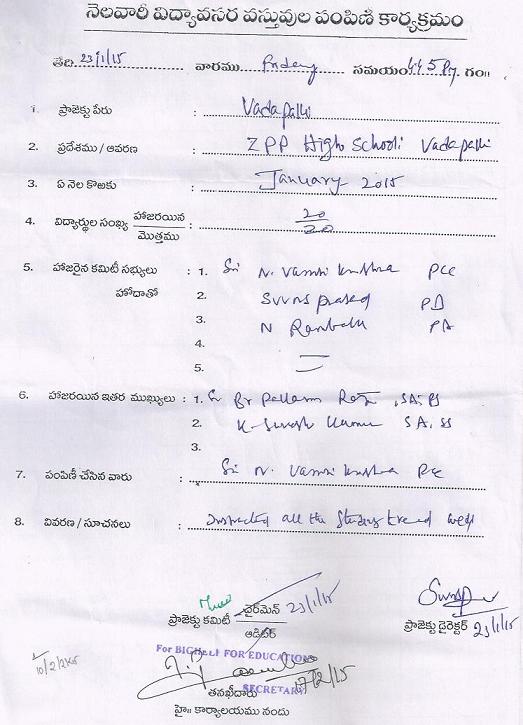 నెలవారీ విద్యావసర వస్తువుల పంపిణి కార్యక్రమం
తేది 23/1/15 వారము Friday సమయం 4.45 Py. గం॥
1. ప్రాజెక్టు పేరు : Vadapalli
2. ప్రదేశము / ఆవరణ : ZPP High School Vadapalli
3. ఏ నెల కొఱకు : January 2015
4. విద్యార్థుల సంఖ్య హాజరయిన / మొత్తము : 20 / 20
5. హాజరైన కమిటీ సభ్యులు : 1. Sri N. Vamsi Krishna PCC
హోదాతో 2. SVVNS Prasad PD
3. N Rambabu PA
4.
5. —
6. హాజరయిన ఇతర ముఖ్యులు : 1. Sri Br Pallam Raju, SA. PS
2. K. Suresh Kumar SA, SS
3.
7. పంపిణీ చేసిన వారు : Sri N. Vamsi Krishna PCC
8. వివరణ / సూచనలు : Instructed all the Students read well
ప్రాజెక్టు కమిటీ చైర్‌మెన్ / ఆడిటర్ 23/1/15
ప్రాజెక్టు డైరెక్టర్ 23/1/15
For BIGHELP FOR EDUCATION
10/2/2015
SECRETARY 17/2/15
తనఖీదారు
హై॥ కార్యాలయము నందు